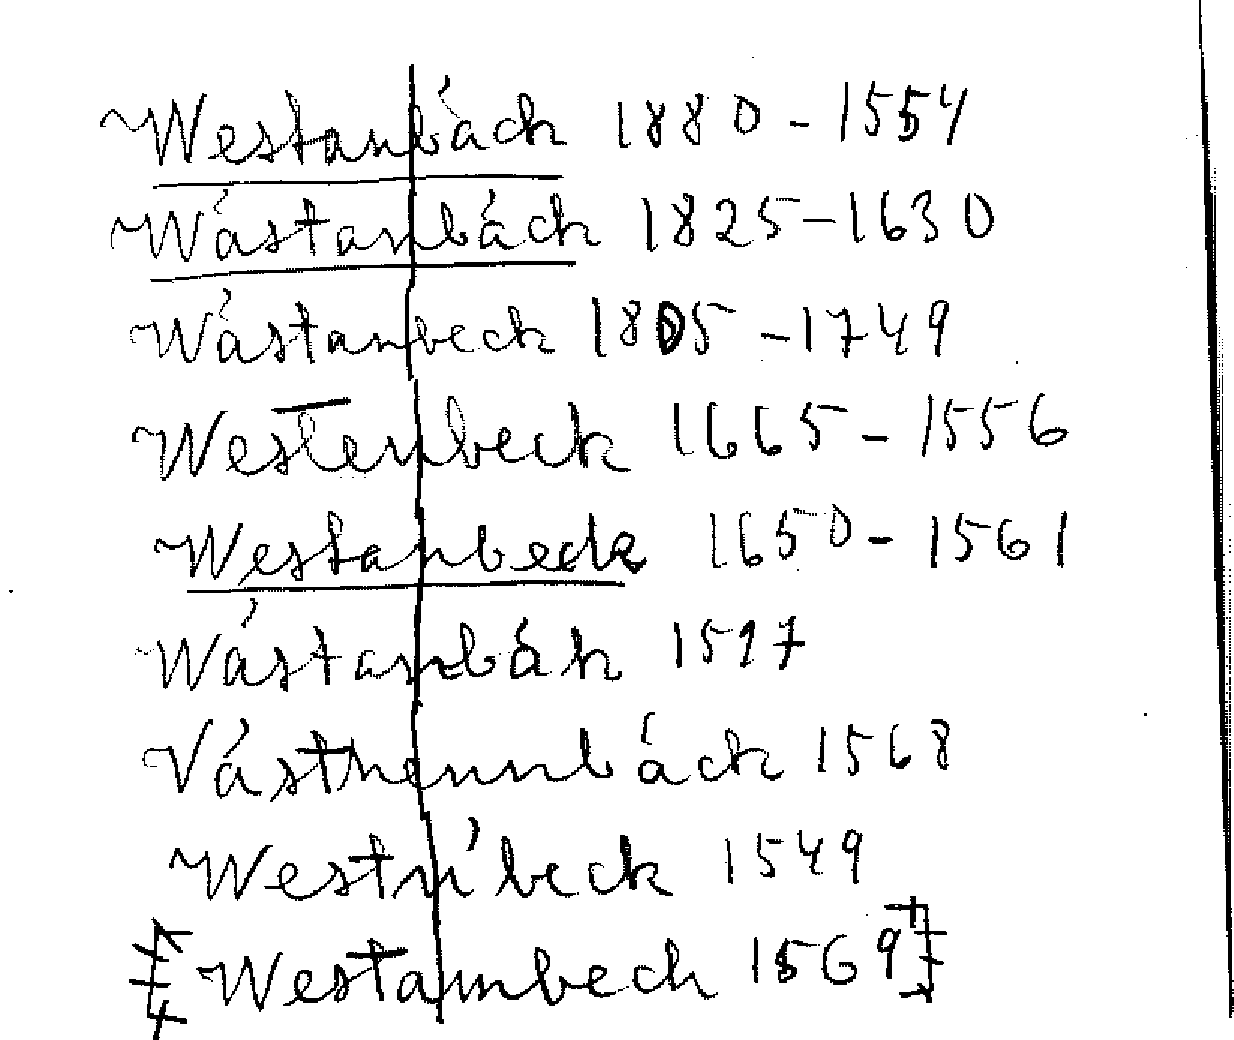 Westanbáck 1880-1554
Wástanbáck 1825-1630
Wástanbeck 1805-1749
Westenbeck 1665-1556
Westanbeck 1650-1561
Wástanbák 1597
Vásthennbáck 1568
Westn'beck 1549
[Westambech 1569]